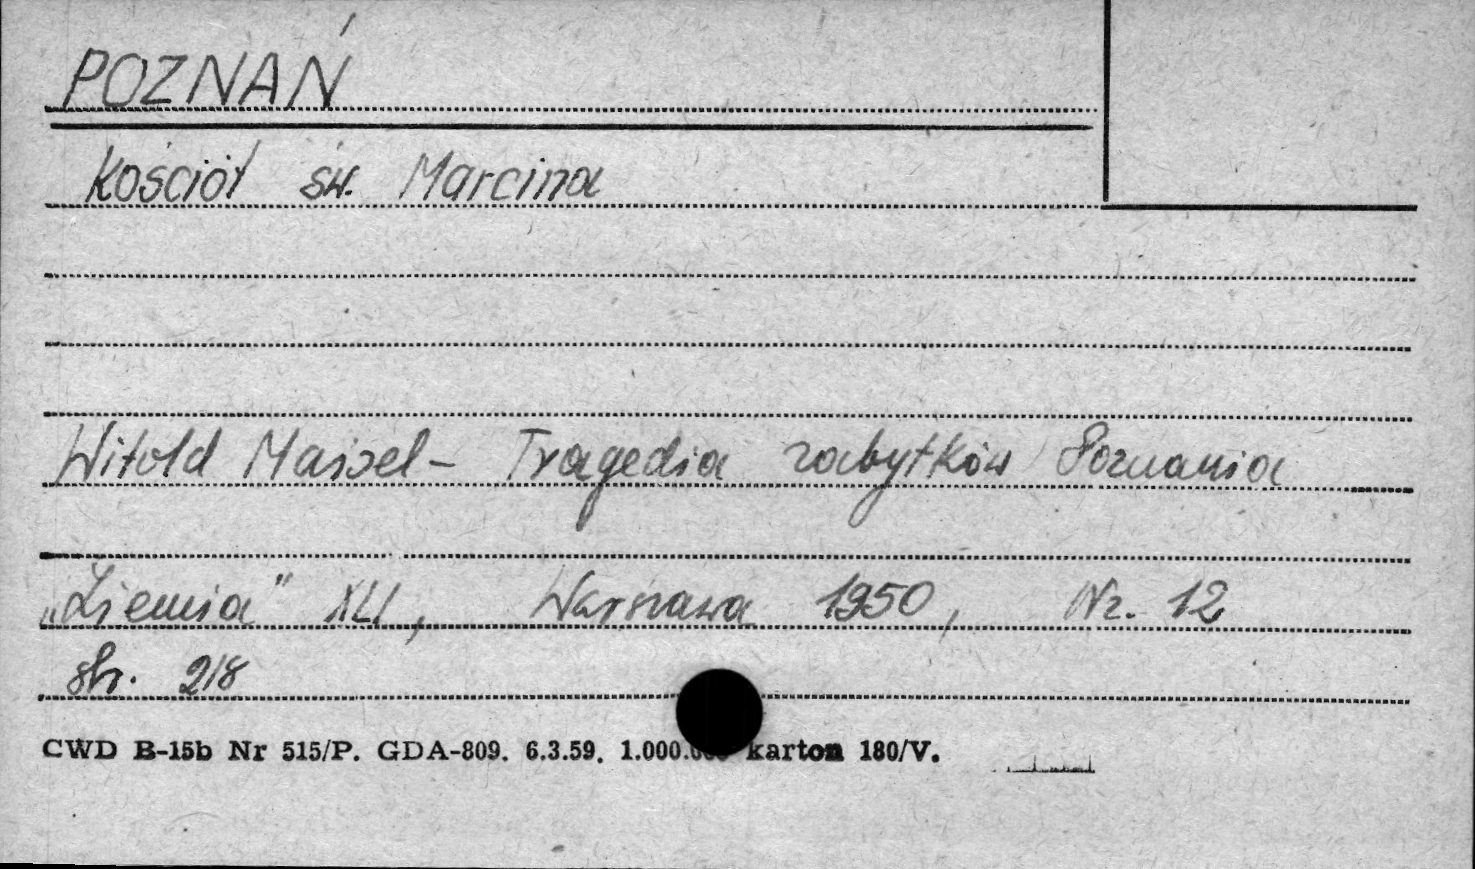 POZNAŃ
Kościół św. Marcina
Witold Maisel - Tragedia zabytków Poznania
„Ziemia" XLI, Warszawa 1950, Nr. 12
str. 218
CWD B-15b Nr 515/P. GDA-809. 6.3.59. 1.000. karton 180/V.